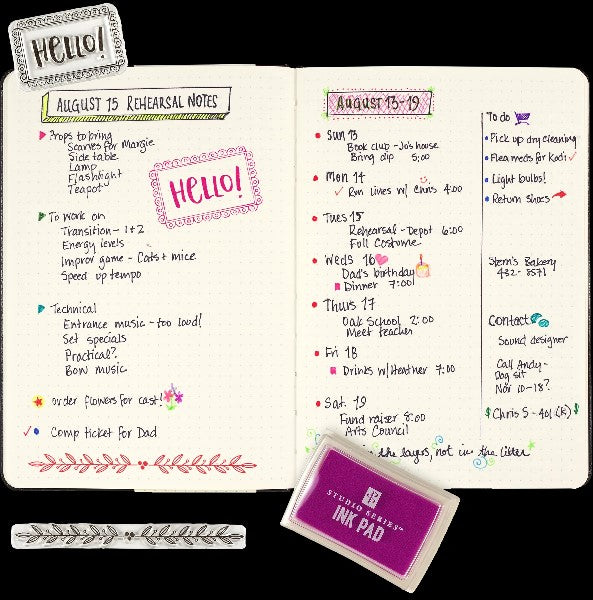 HELLO!
AUGUST 15 REHEARSAL NOTES
Props to bring
Scarves for Margie
Side table
Lamp
Flashlight
Teapot
HELLO!
To work on
Transition - 1+2
Energy levels
Improv game - Cats + mice
Speed up tempo
Technical
Entrance music - too loud!
Set specials
Practical?
Bow music
order flowers for cast!
Comp ticket for Dad
August 13-19
Sun 13
Book club - Jo's house
Bring dip 5:00
Mon 14
Run lines w/ Chris 4:00
Tues 15
Rehearsal - Depot 6:00
Full Costume
Weds 16
Dad's birthday
Dinner 7:00!
Thurs 17
Oak School 2:00
Meet teacher
Fri 18
Drinks w/Heather 7:00
Sat. 19
Fund raiser 8:00
Arts Council
in the layers, not in the litter
To do
Pick up dry cleaning
Flea meds for Kodi
Light bulbs!
Return shoes
Stern's Bakery
432-8571
Contact
Sound designer
Call Andy-
Dog sit
Nov 10-18?
Chris S - 401(k)
STUDIO SERIES™
INK PAD